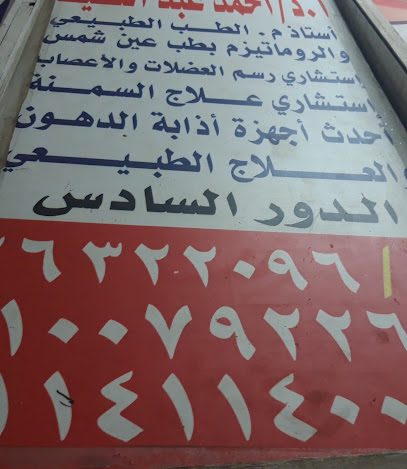 أ.د/ احمد عبد
أستاذ م. الطب الطبيعي
والروماتيزم بطب عين شمس
إستشاري رسم العضلات والأعصاب
إستشاري علاج السمنة
أحدث أجهزة أذابة الدهون
والعلاج الطبيعي
الدور السادس
٢٦٣٢٢٠٩٦/
١٠٠٧٩٢٢٦
١١٤١١٤٠٠